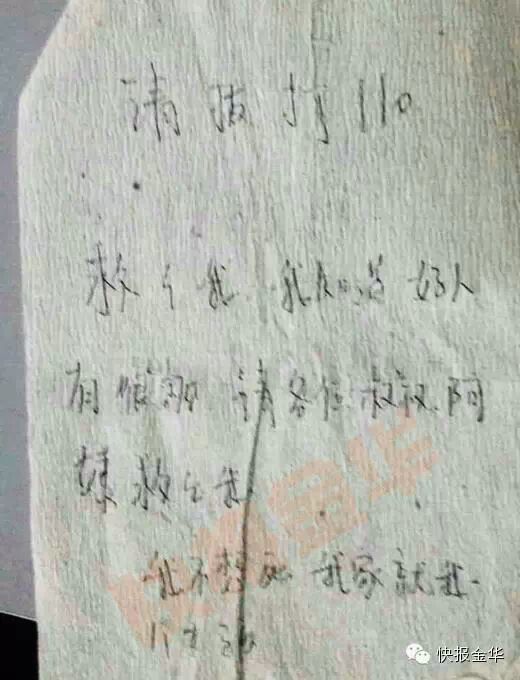 请拔打110
救个我 我 好人
有 请各位叔叔、阿
姨救个我
我不想死 我家就我一
个
快报金华
快报金华